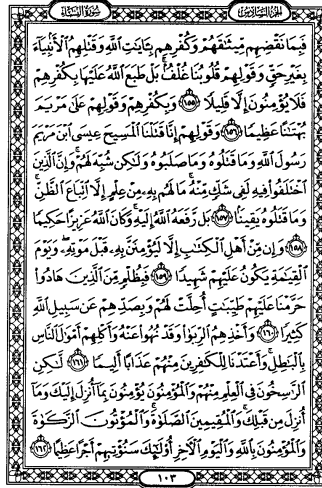 الجزء السادس
سورة النساء
فَبِمَا نَقْضِهِم مِّيثَٰقَهُمْ وَكُفْرِهِم بِـَٔايَٰتِ ٱللَّهِ وَقَتْلِهِمُ ٱلْأَنۢبِيَآءَ
بِغَيْرِ حَقٍّ وَقَوْلِهِمْ قُلُوبُنَا غُلْفٌۢ بَلْ طَبَعَ ٱللَّهُ عَلَيْهَا بِكُفْرِهِمْ
فَلَا يُؤْمِنُونَ إِلَّا قَلِيلًا ١٥٥ وَبِكُفْرِهِمْ وَقَوْلِهِمْ عَلَىٰ مَرْيَمَ
بُهْتَٰنًا عَظِيمًا ١٥٦ وَقَوْلِهِمْ إِنَّا قَتَلْنَا ٱلْمَسِيحَ عِيسَى ٱبْنَ مَرْيَمَ
رَسُولَ ٱللَّهِ وَمَا قَتَلُوهُ وَمَا صَلَبُوهُ وَلَٰكِن شُبِّهَ لَهُمْ وَإِنَّ ٱلَّذِينَ
ٱخْتَلَفُوا۟ فِيهِ لَفِى شَكٍّ مِّنْهُ مَا لَهُم بِهِۦ مِنْ عِلْمٍ إِلَّا ٱتِّبَاعَ ٱلظَّنِّ
وَمَا قَتَلُوهُ يَقِينًۢا ١٥٧ بَل رَّفَعَهُ ٱللَّهُ إِلَيْهِ وَكَانَ ٱللَّهُ عَزِيزًا حَكِيمًا
١٥٨ وَإِن مِّنْ أَهْلِ ٱلْكِتَٰبِ إِلَّا لَيُؤْمِنَنَّ بِهِۦ قَبْلَ مَوْتِهِۦ وَيَوْمَ
ٱلْقِيَٰمَةِ يَكُونُ عَلَيْهِمْ شَهِيدًا ١٥٩ فَبِظُلْمٍ مِّنَ ٱلَّذِينَ هَادُوا۟
حَرَّمْنَا عَلَيْهِمْ طَيِّبَٰتٍ أُحِلَّتْ لَهُمْ وَبِصَدِّهِمْ عَن سَبِيلِ ٱللَّهِ
كَثِيرًا ١٦٠ وَأَخْذِهِمُ ٱلرِّبَوٰا۟ وَقَدْ نُهُوا۟ عَنْهُ وَأَكْلِهِمْ أَمْوَٰلَ ٱلنَّاسِ
بِٱلْبَٰطِلِ وَأَعْتَدْنَا لِلْكَٰفِرِينَ مِنْهُمْ عَذَابًا أَلِيمًا ١٦١ لَّٰكِنِ
ٱلرَّٰسِخُونَ فِى ٱلْعِلْمِ مِنْهُمْ وَٱلْمُؤْمِنُونَ يُؤْمِنُونَ بِمَآ أُنزِلَ إِلَيْكَ وَمَآ
أُنزِلَ مِن قَبْلِكَ وَٱلْمُقِيمِينَ ٱلصَّلَوٰةَ وَٱلْمُؤْتُونَ ٱلزَّكَوٰةَ
وَٱلْمُؤْمِنُونَ بِٱللَّهِ وَٱلْيَوْمِ ٱلْءَاخِرِ أُو۟لَٰٓئِكَ سَنُؤْتِيهِمْ أَجْرًا عَظِيمًا ١٦٢
١٠٣